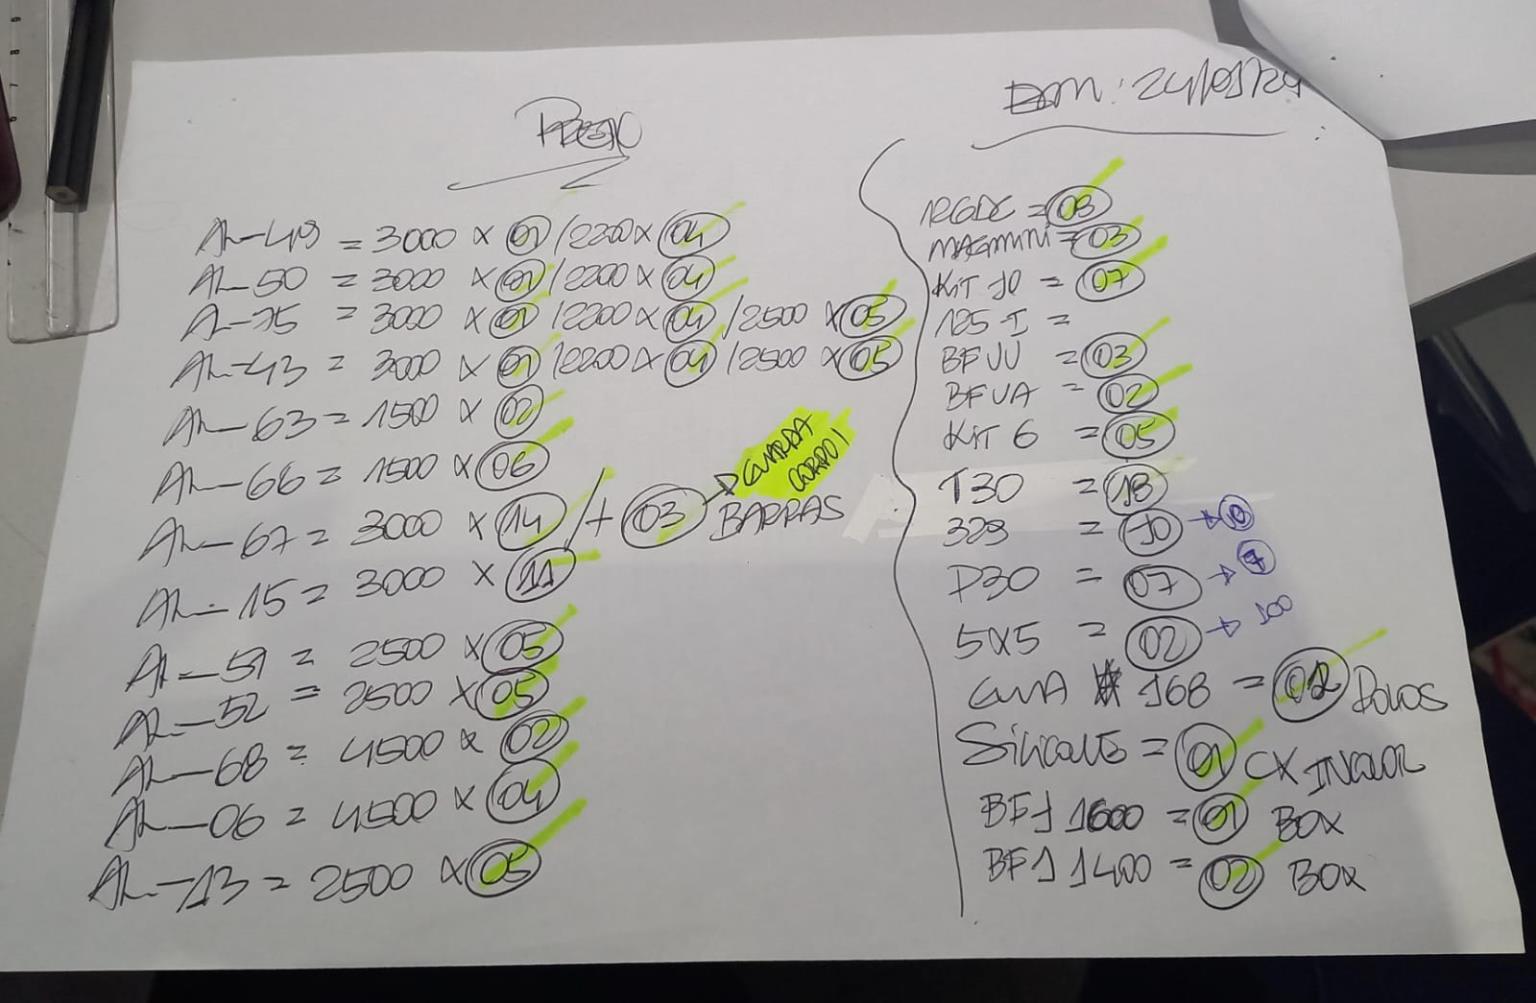 PRETO
AL-49 = 3000 x 01 / 2200 x 04
AL-50 = 3000 x 01 / 2200 x 04
AL-75 = 3000 x 01 / 2200 x 04 / 2500 x 05
AL-43 = 3000 x 01 / 2200 x 04 / 2500 x 05
AL-63 = 1500 x 02
AL-66 = 1500 x 06
AL-67 = 3000 x 14 / + 03 BARRAS
GUARDA
CORPO!
AL-15 = 3000 x 11
AL-51 = 2500 x 05
AL-52 = 2500 x 05
AL-68 = 4500 x 02
AL-06 = 4500 x 04
AL-13 = 2500 x 05
DOM: 24/01/24
= 03
MAGMINI = 03
KIT 10 = 07
125-I =
BFVV = 03
BFVA = 02
KIT 6 = 05
T30 = 18
329 = 10 →
P30 = 07 → 7
5x5 = 02 → 100
GUIA 168 = ROLOS
SILICONE = 01 CX INCOLOR
BF1 1600 = 01 BOX
BF1 1400 = 02 BOX